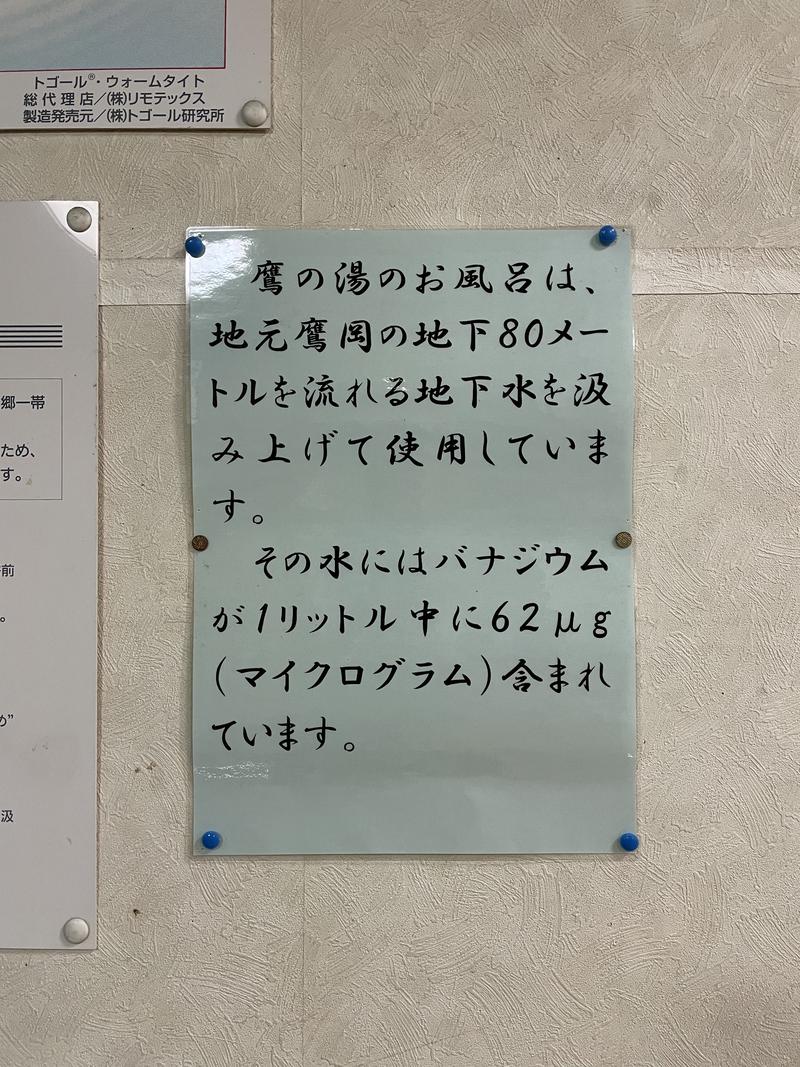 トゴール®・ウォームタイト
総代理店／(株)リモテックス
製造発売元／(株)トゴール研究所
郷一帯
ため、
す。
前
。
め”
汲
鷹の湯のお風呂は、
地元鷹岡の地下80メー
トルを流れる地下水を汲
み上げて使用していま
す。
その水にはバナジウム
が1リットル中に62μg
(マイクログラム)含まれ
ています。